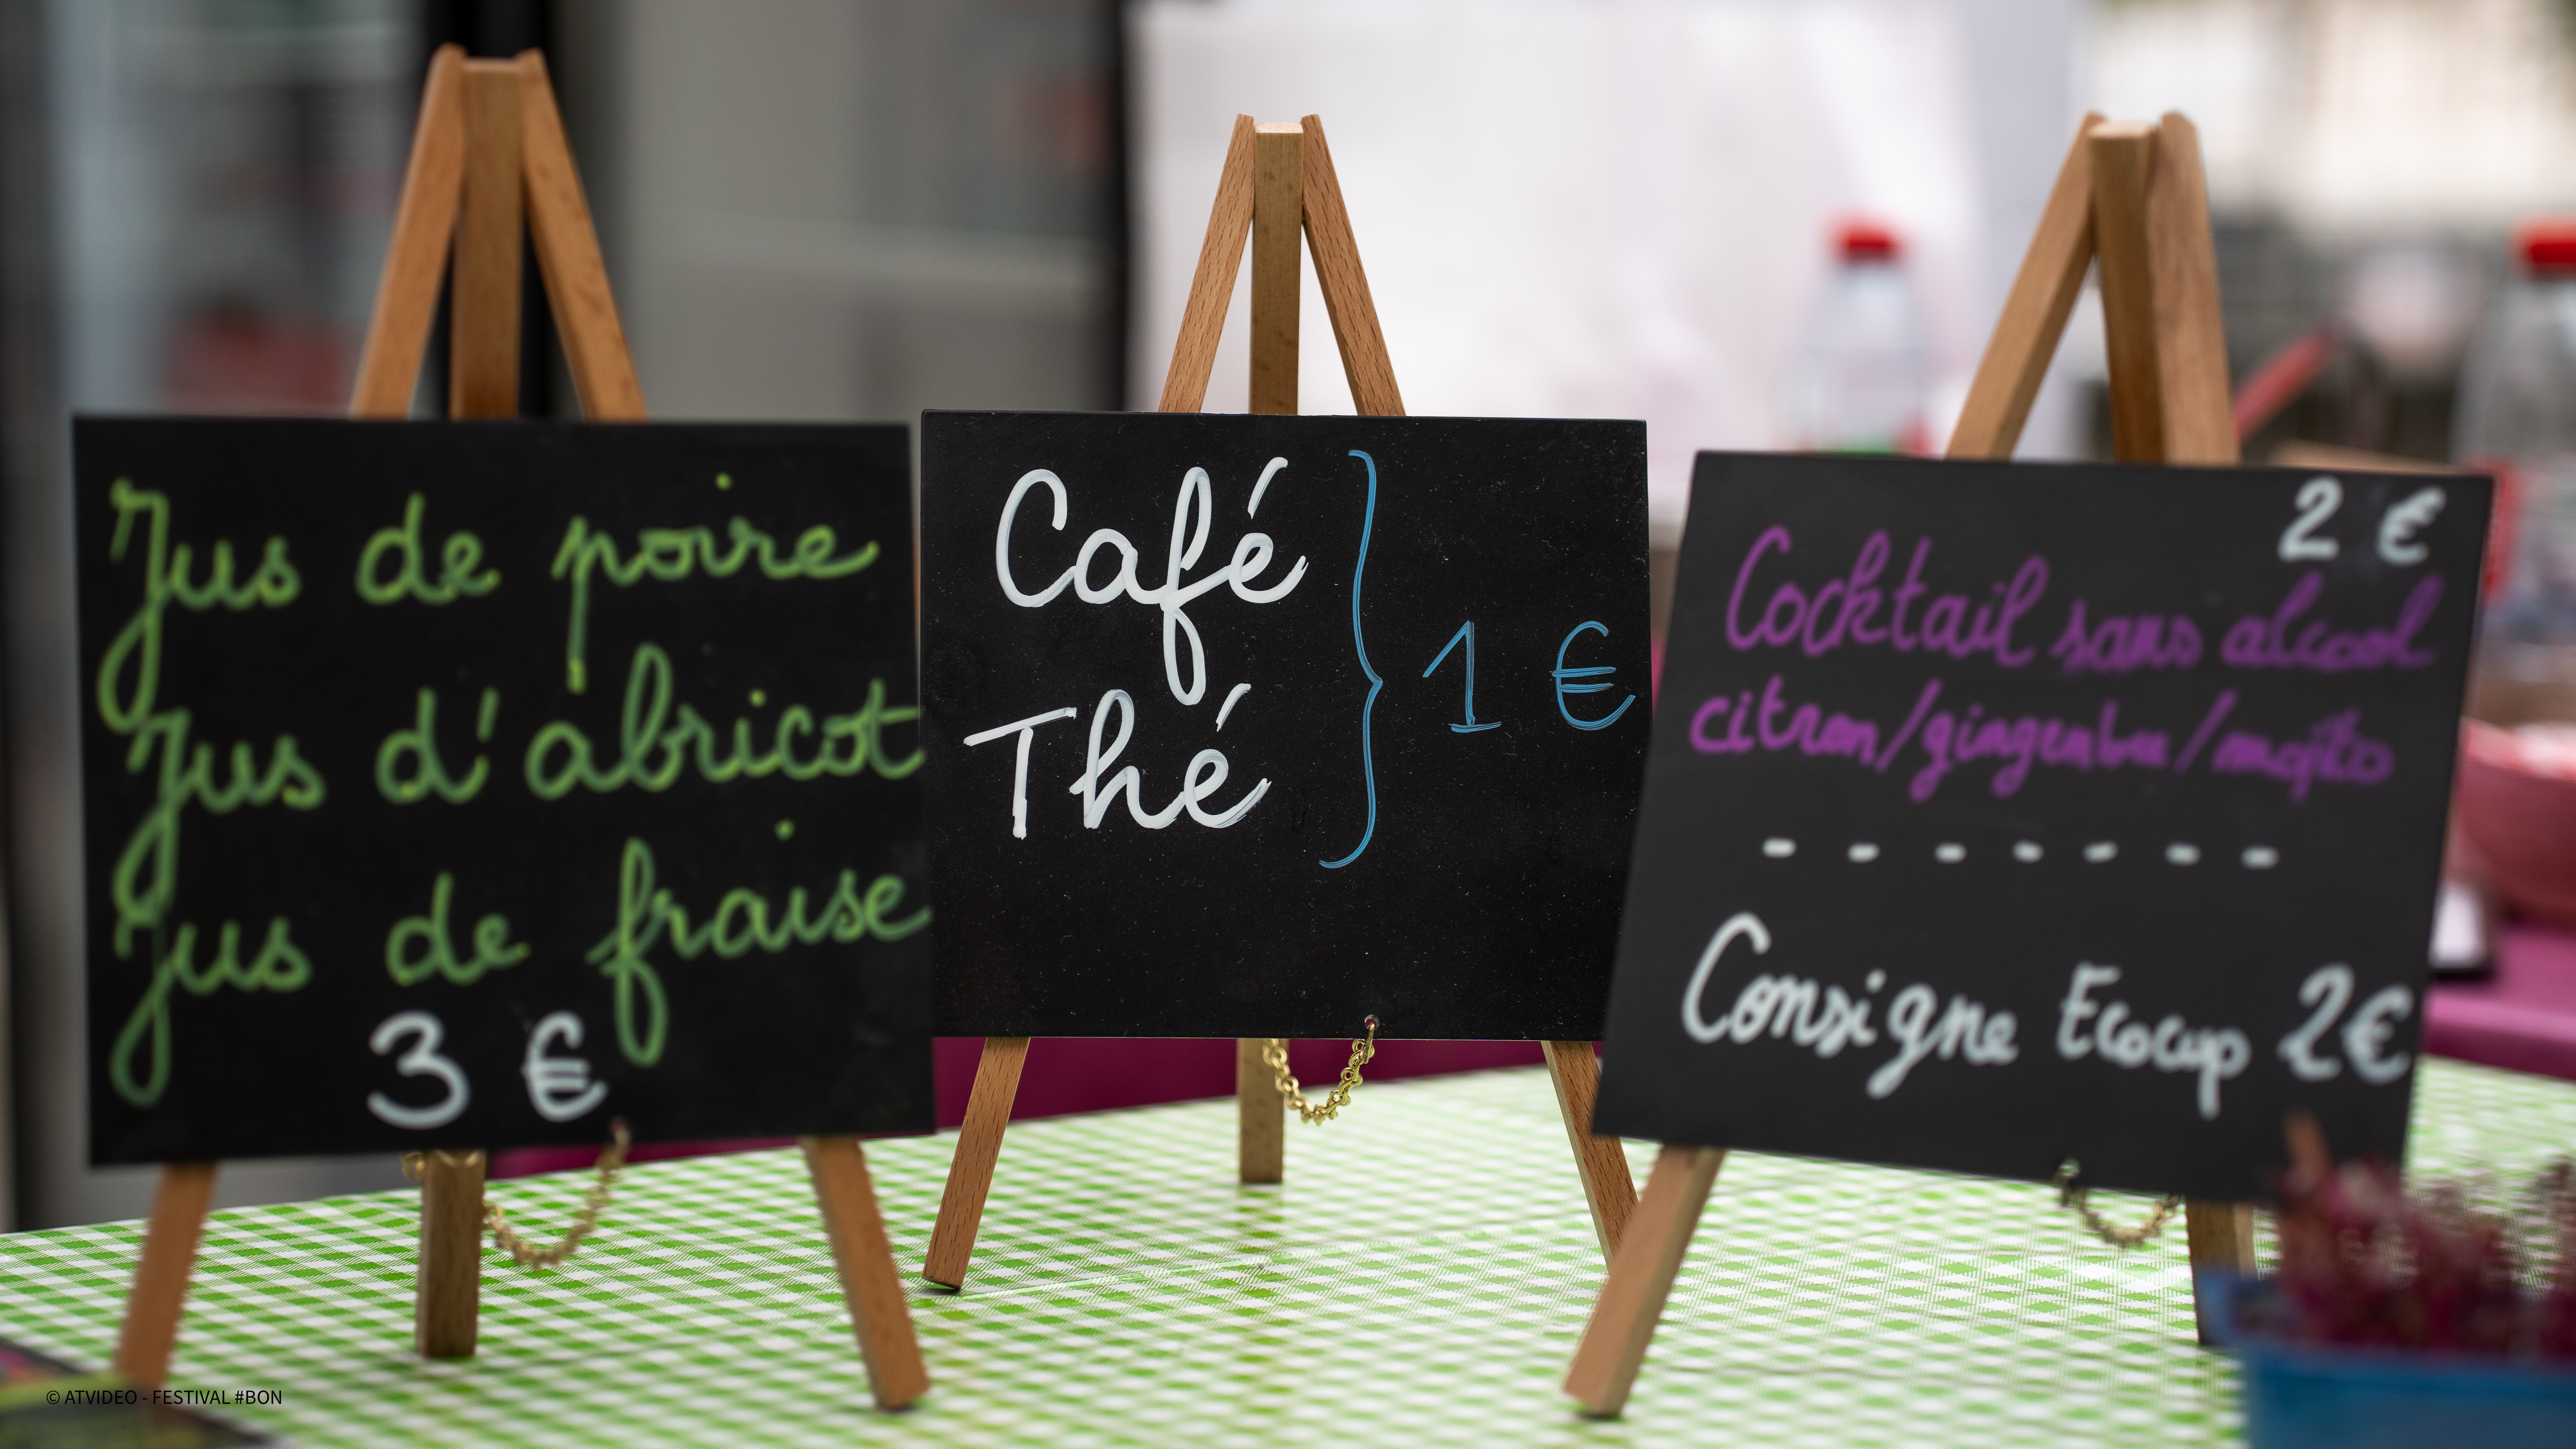 Jus de poire
Jus d'abricot
Jus de fraise
3 €
Café
Thé
} 1 €
2 €
Cocktail sans alcool
citron/gingembre/mojito
- - - - - - -
Consigne Ecocup 2€
© ATVIDEO - FESTIVAL #BON